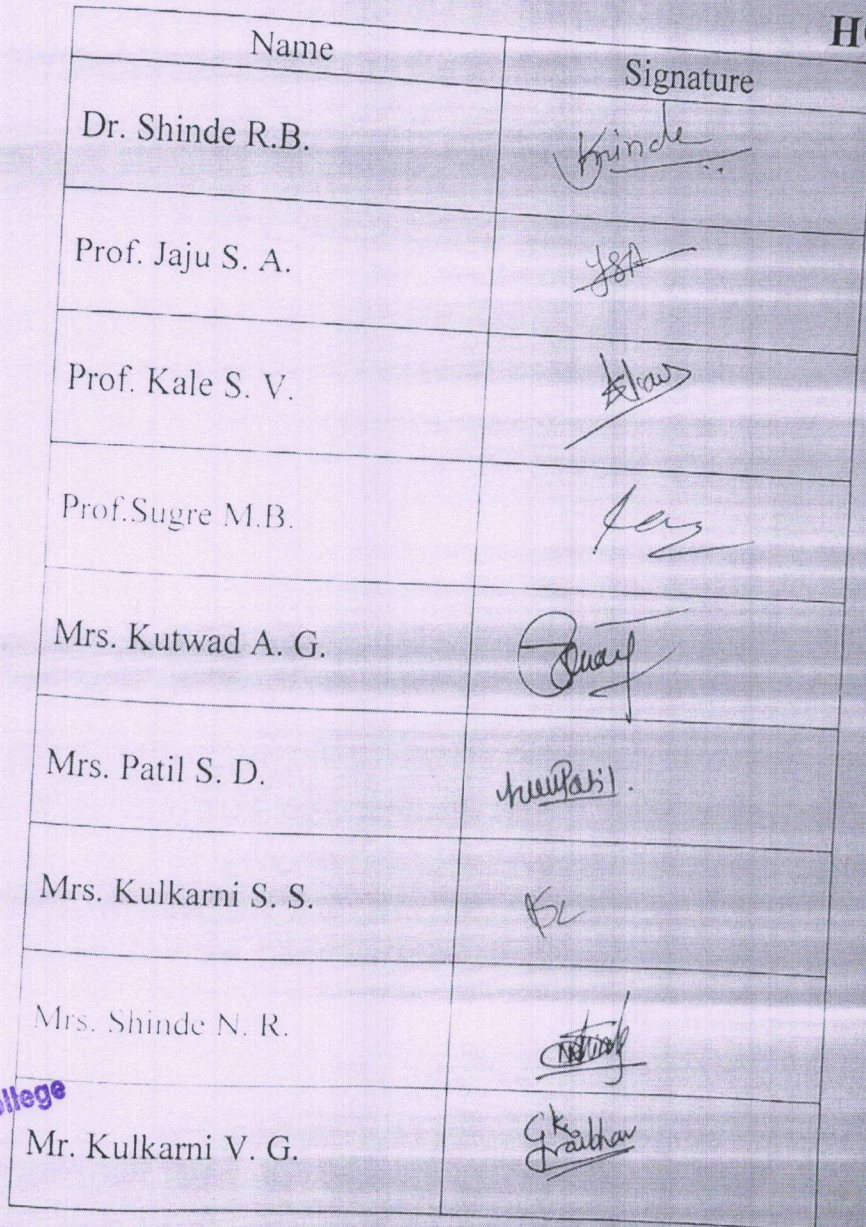 HO
Name Signature
Dr. Shinde R.B. Shinde
Prof. Jaju S. A. JSA
Prof. Kale S. V.
Prof.Sugre M.B.
Mrs. Kutwad A. G.
Mrs. Patil S. D. Patil.
Mrs. Kulkarni S. S.
Mrs. Shinde N. R.
ollege
Mr. Kulkarni V. G.